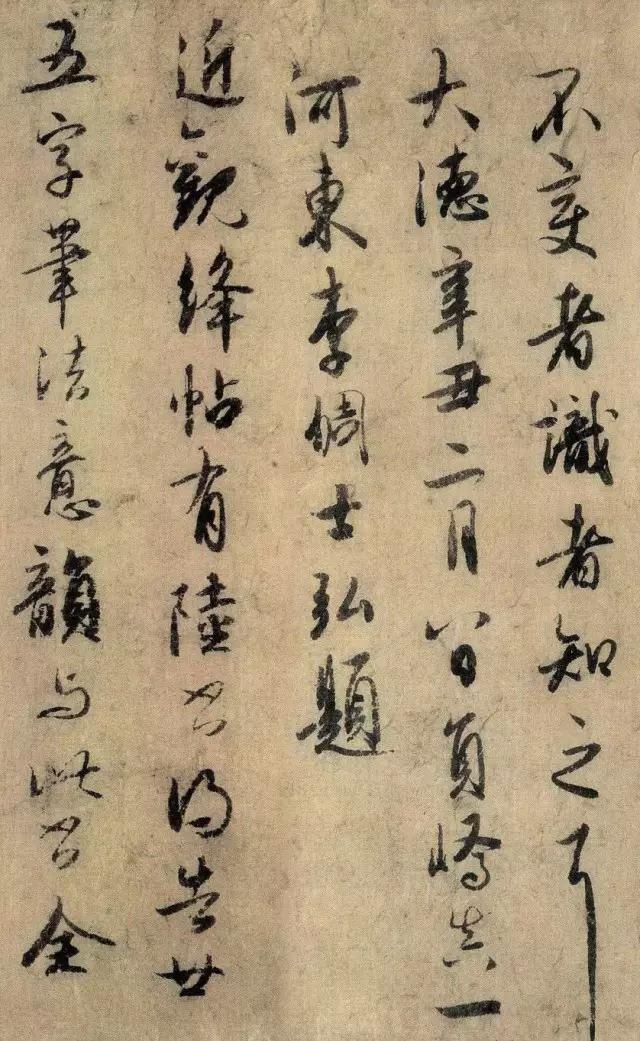 不变者識者知之耳
大德辛丑二月八日員嶠真一
河東李倜士弘題
近觀絳帖有陸書得告廿
五字筆法意韻与此書全